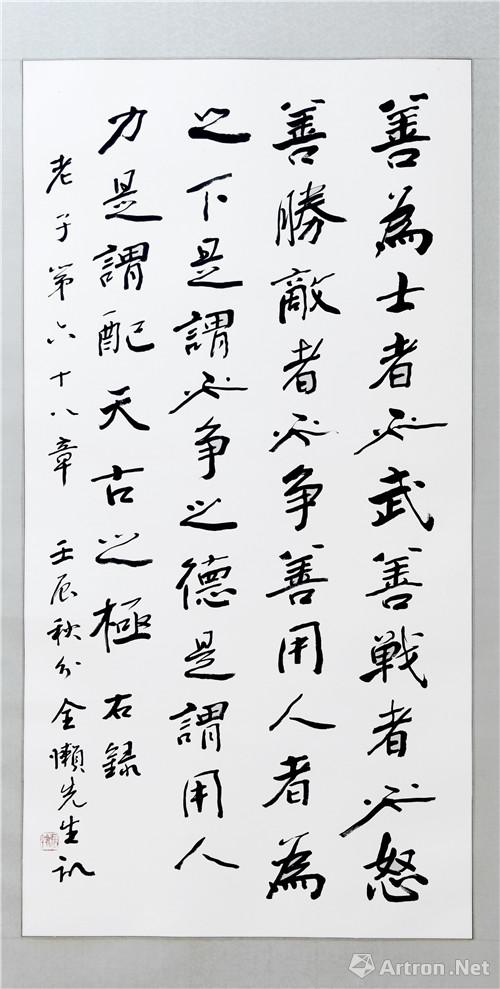 善為士者不武善戦者不怒
善勝敵者不争善用人者為
之下是謂不争之德是謂用人
力是謂配天古之極 右録
老子第六十八章 壬辰秋分 金懶先生
Artron.Net